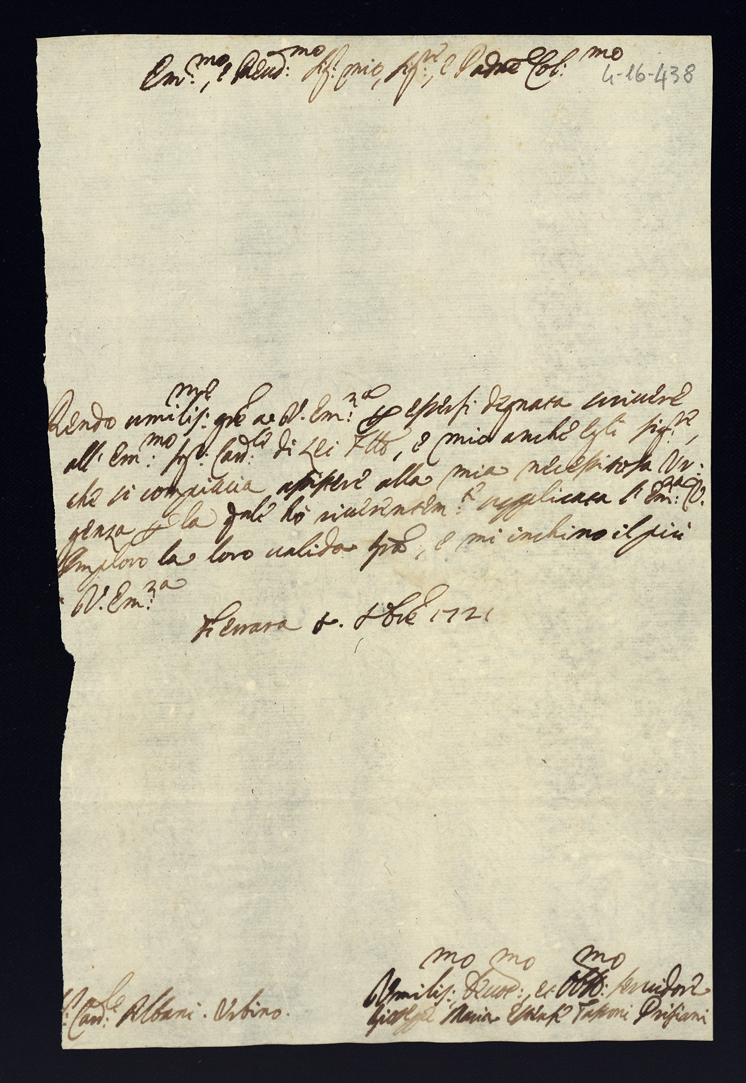 Em:mo, e Reud:mo Sig:r mio, Sig:re, e Padrõe Col:mo
4-16-438
Rendo umilis:me grẽ a V. Em:za p essersi degnata scrivere
all' Em:mo Sig: Card:le di Lei Fllo, e mio anche Egli Sig:re,
che si compiaccia assistere alla mia necessitosa Ur:
genza p la qule hò riverentem:te supplicata S. Em:za V.
Imploro la loro valida grã, e mi inchino il più
V. Em:za
Ferrara 8bre 1721
Card:le Albani. Urbino.
Umilis:mo Deuot:mo, et Obb:mo Seruidore
Gioseppe Maria Estense Tassoni Prisiani